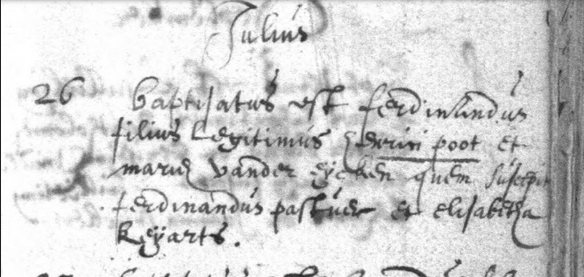 Julius
26 baptisatus est ferdinandus
filius Legitimus Henrici poot et
mariæ vander eycken quem suscepit
ferdinandus et elisabetha
Keyarts.